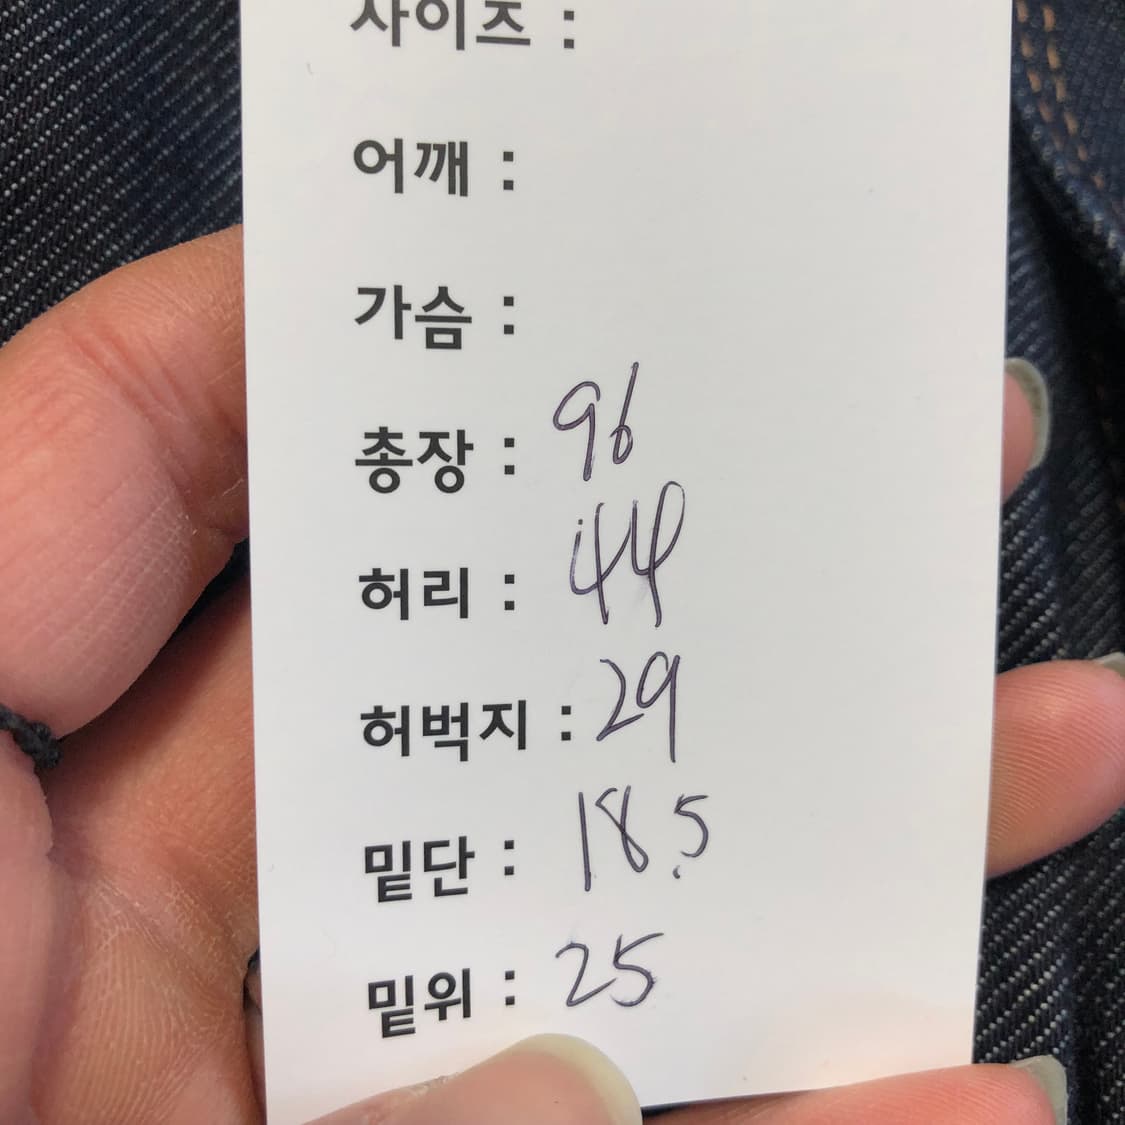 사이즈 :
어깨 :
가슴 :
총장 : 96
허리 : 44
허벅지 : 29
밑단 : 18.5
밑위 : 25